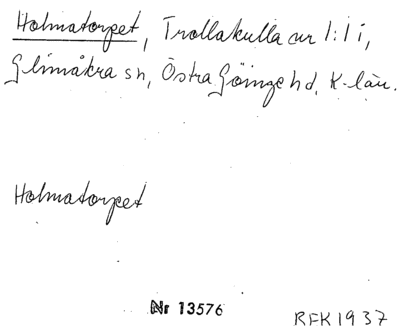 Holmatorpet, Trollakulla nr 1:1 i,
Glimåkra sn, Östra Göinge hd, K-län.
Holmatorpet
Nr 13576
RFK 1937